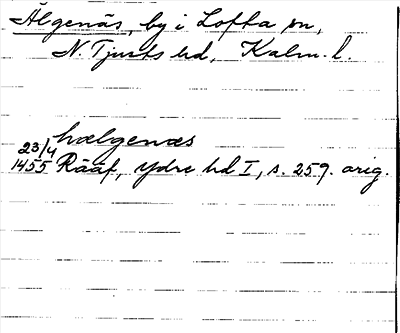 Älgenäs, by i Lofta sn,
N. Tjusts hd, Kalm. l.
hælgenæs
23/4
1455 Rääf, Ydre hd I, s. 259. orig.